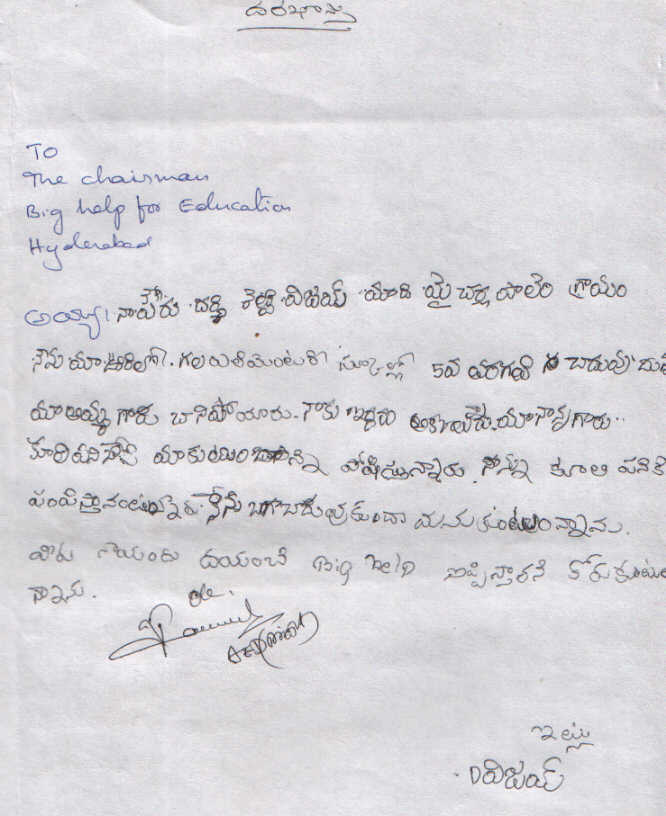 దరఖాస్తు
To
The chairman
Big help for Education
Hyderabad
అయ్యా! నా పేరు దర్శి విజయ్ మాది చర్ల పాలెం గ్రామం
నేను మా ఊరిలో గల ఎలిమెంటరీ స్కూల్లో 5వ తరగతి చదువు
మా అమ్మ గారు చనిపోయారు. నాకు ఇద్దరు అక్కలు. మా నాన్న గారు
కూలి పని చేసి మా కుటుంబాన్ని పోషిస్తున్నారు. నన్ను కూలి పనికి
పంపిస్తానంటున్నారు. నేను బాగా చదువుకుందామనుకుంటున్నాను.
మీరు నాయందు దయంచి Big help ఇప్పిస్తారని కోరుకుంటు
న్నాను.
ఇట్లు
విజయ్